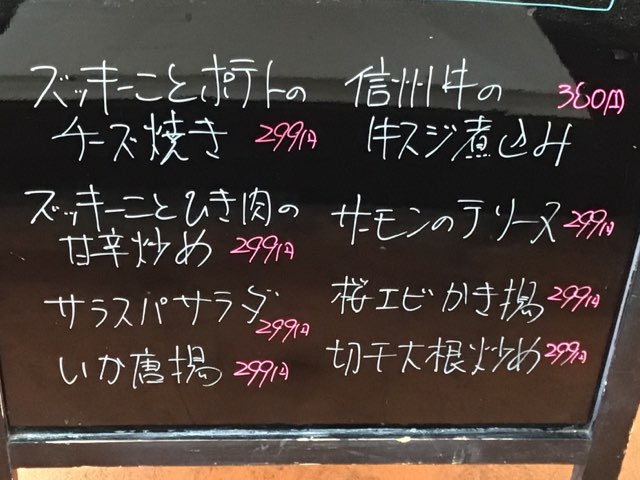 ズッキーニとポテトの
チーズ焼き 299円
ズッキーニとひき肉の
甘辛炒め 299円
サラスパサラダ
299円
いか唐揚 299円
信州牛の 380円
牛スジ煮込み
サーモンのテリーヌ 299円
桜エビかき揚 299円
切干大根炒め 299円